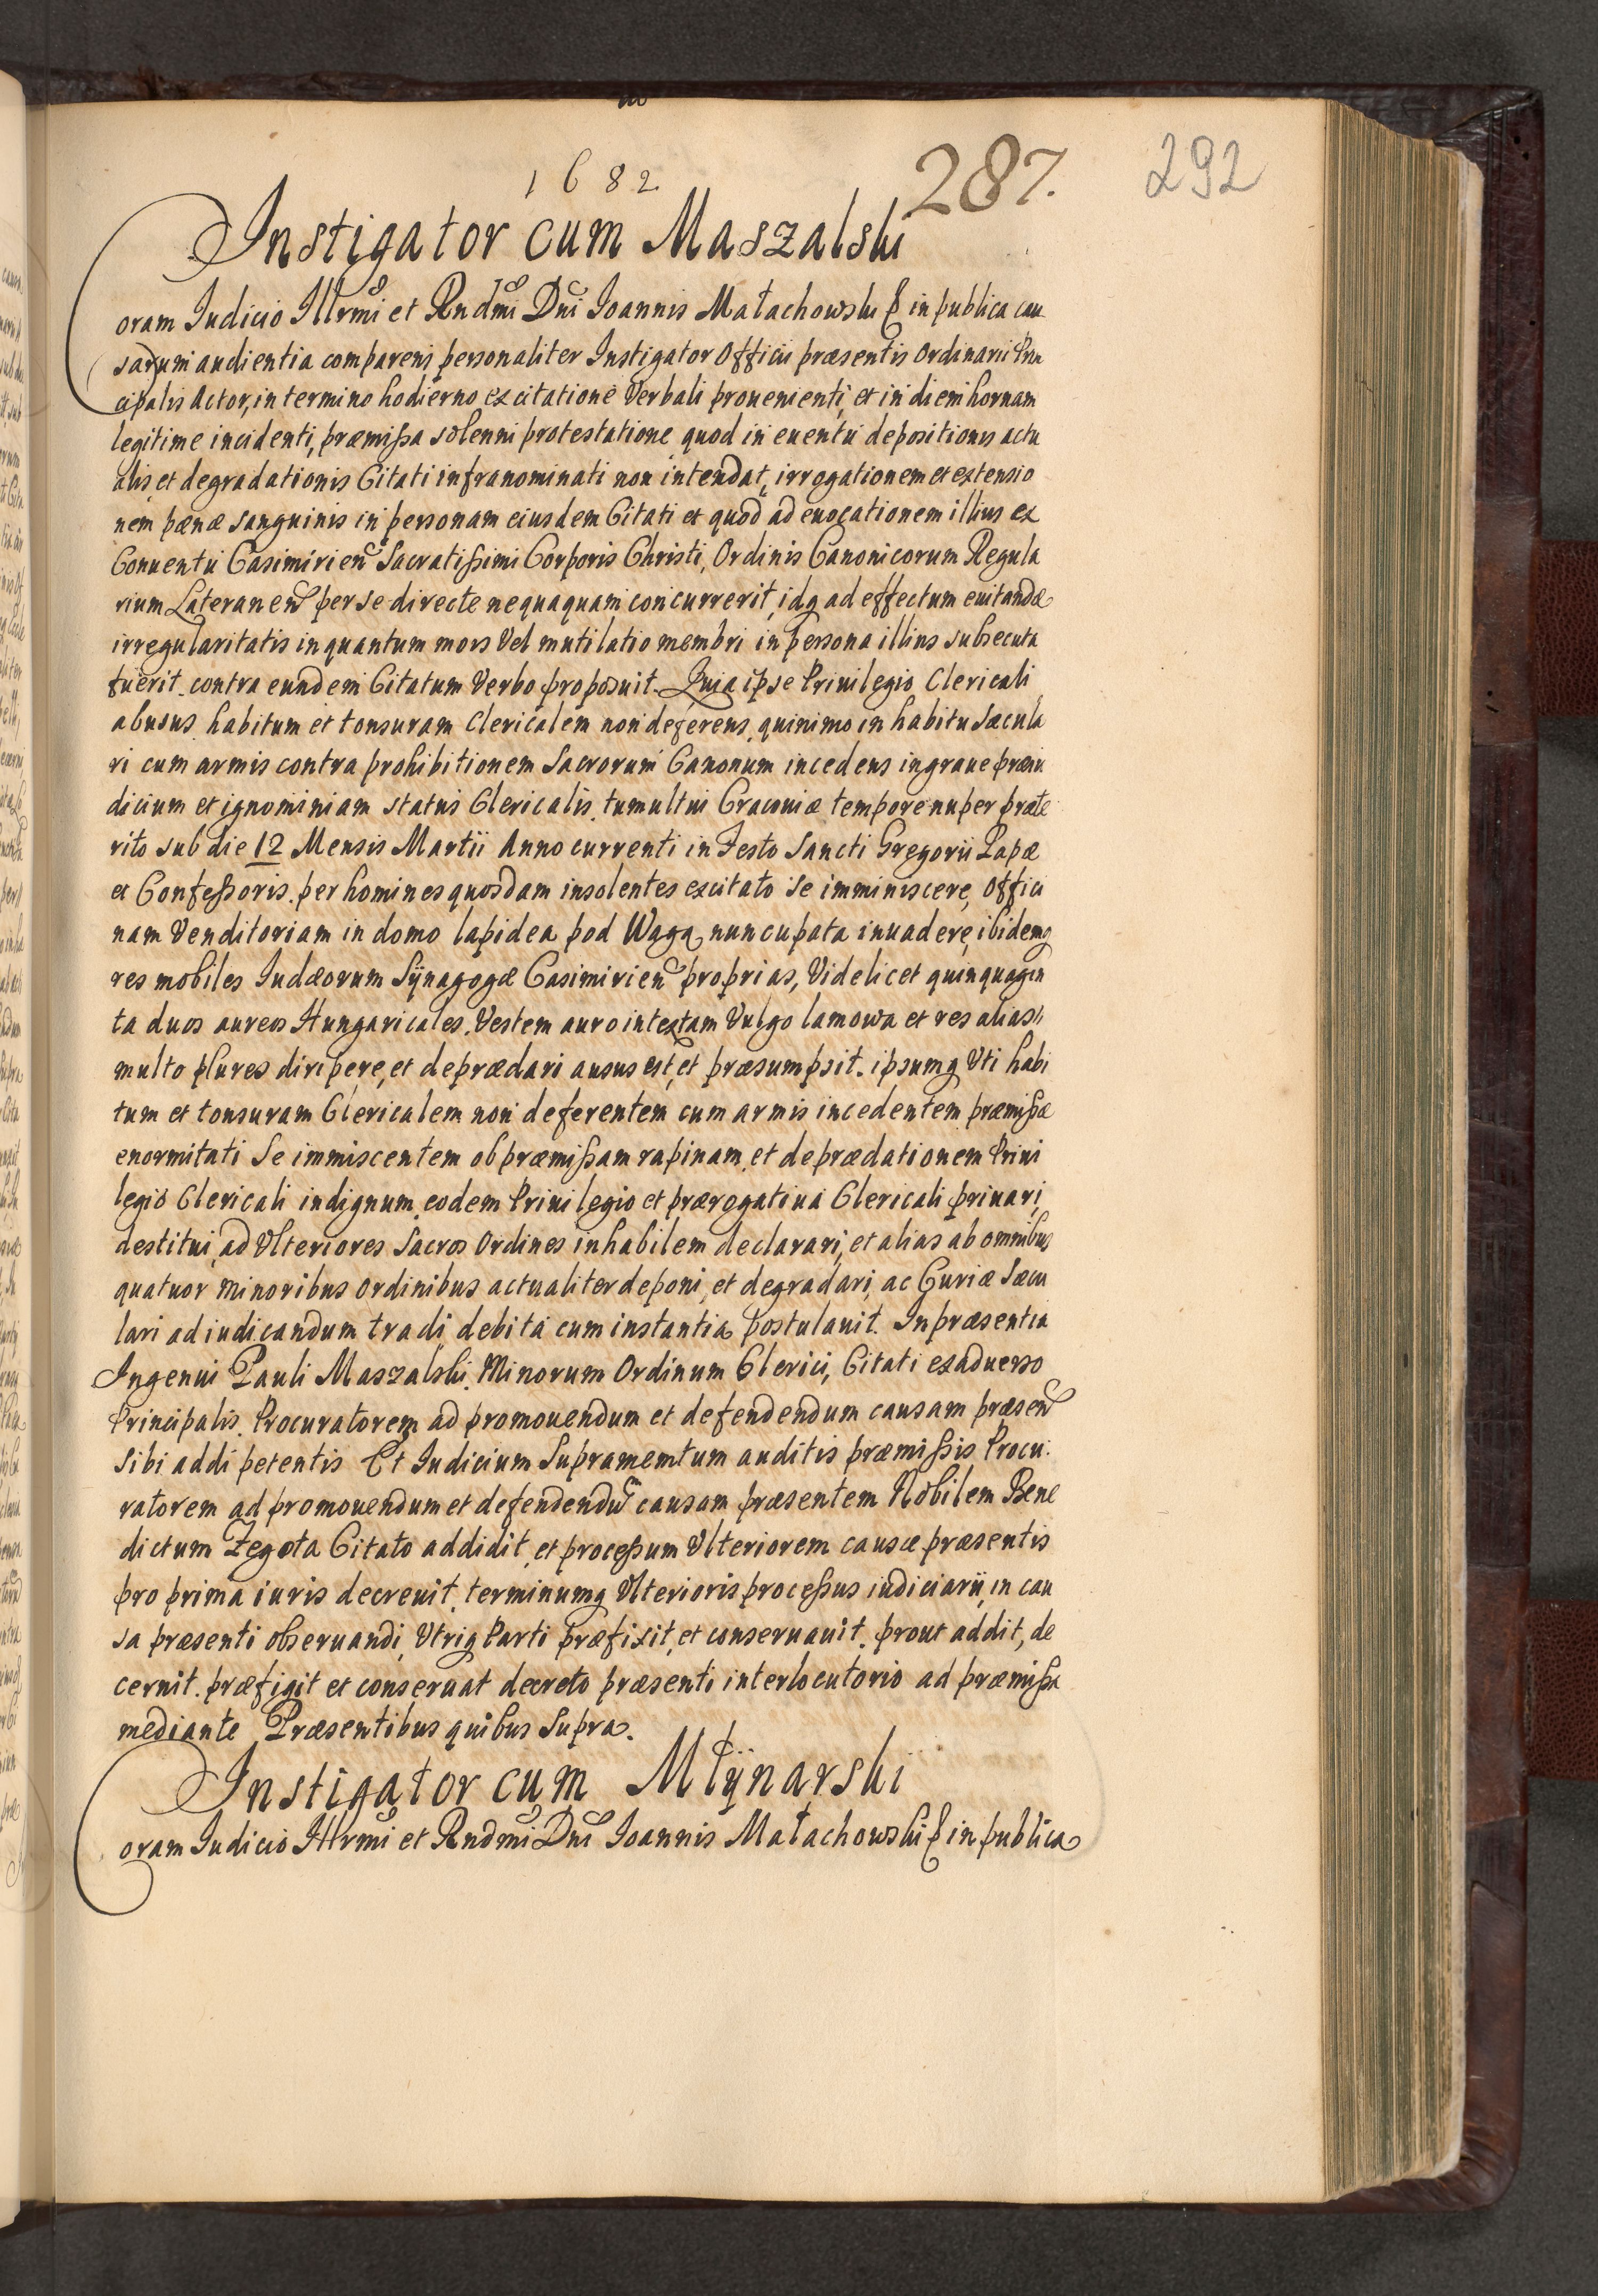 1682
287.
292
Instigator cum Maszalski
Coram Iudicio Illrmi et Rndmi Dni Ioannis Małachowski in publica cau
sarum audientia comparens personaliter Instigator Officii præsentis Ordinarii Prin
cipalis Actor, in termino hodierno ex citatione Verbali proueniente, et in diem hornam
legitime incidenti, præmissa solenni protestatione quod in euentu depositionis actu
alis et degradationis Citati infranominati non intendat, irrogationem et extensio
nem pænæ sanguinis in personam eiusdem Citati et quod ad euocationem illius ex
Conuentu Casimirien Sacratissimi Corporis Christi, Ordinis Canonicorum Regula
rium Lateranen per se directe nequaquam concurrerit, idq ad effectum euitandæ
irregularitatis in quantum mors Vel mutilatio membri in persona illius subsecuta
fuerit. contra eundem Citatum Verbo proposuit. Quia ipse Priuilegio Clericali
abusus habitum et tonsuram Clericalem non deferens, quinimo in habitu Sæcula
ri cum armis contra prohibitionem Sacrorum Canonum incedens in graue præiu
dicium et ignominiam status Clericalis, tumultui Cracouiæ tempore nuper præte
rito sub die 12 Mensis Martii Anno currenti in Festo Sancti Gregorii Papæ
et Confessoris. per homines quosdam insolentes excitato se imminiscere, Offici
nam Venditoriam in domo lapidea pod Wagą nuncupata inuadere, ibidemq
res mobiles Iudæorum Sÿnagogæ Casimirien proprias, Videlicet quinquagin
ta duos aureos Hungaricales. Vestem auro intextam Vulgo lamowa et res alias
multo plures diripere, et deprædari ausus est, et præsumpsit. ipsumq Uti habi
tum et tonsuram Clericalem non deferentem cum armis incedentem præmissæ
enormitati Se immiscentem ob præmissam rapinam, et deprædationem Priui
legio Clericali indignum, eodem Priuilegio et prærogatiua Clericali priuari,
destitui, ad Ulteriores Sacros Ordines inhabilem declarari, et alias ab omnibus
quatuor Minoribus Ordinibus actualiter deponi, et degradari, ac Curiæ Sæcu
lari ad iudicandum tradi debita cum instantia postulauit. In præsentia
Ingenui Pauli Maszalski, Minorum Ordinum Clerici, Citati ex aduerso
Principalis. Procuratorem ad promouendum et defendendum causam præsen
Sibi addi petentis Et Iudicium Supramemtum auditis præmissis Procu
ratorem ad promouendum et defendendu causam præsentem Nobilem Bene
dictum Zegota Citato addidit, et processum Ulteriorem causæ præsentis
pro prima iuris decreuit, terminumq Ulterioris processus iudiciarii, in cau
sa præsenti obseruandi, Utriq Parti præfixit, et conseruauit. prout addit, de
cernit. præfigit et conseruat decreto præsenti interlocutorio ad præmissa
mediante Præsentibus quibus Supra.
Instigator cum Młÿnarski
Coram Iudicio Illrmi et Rndmi Dni Ioannis Małachowski in publica